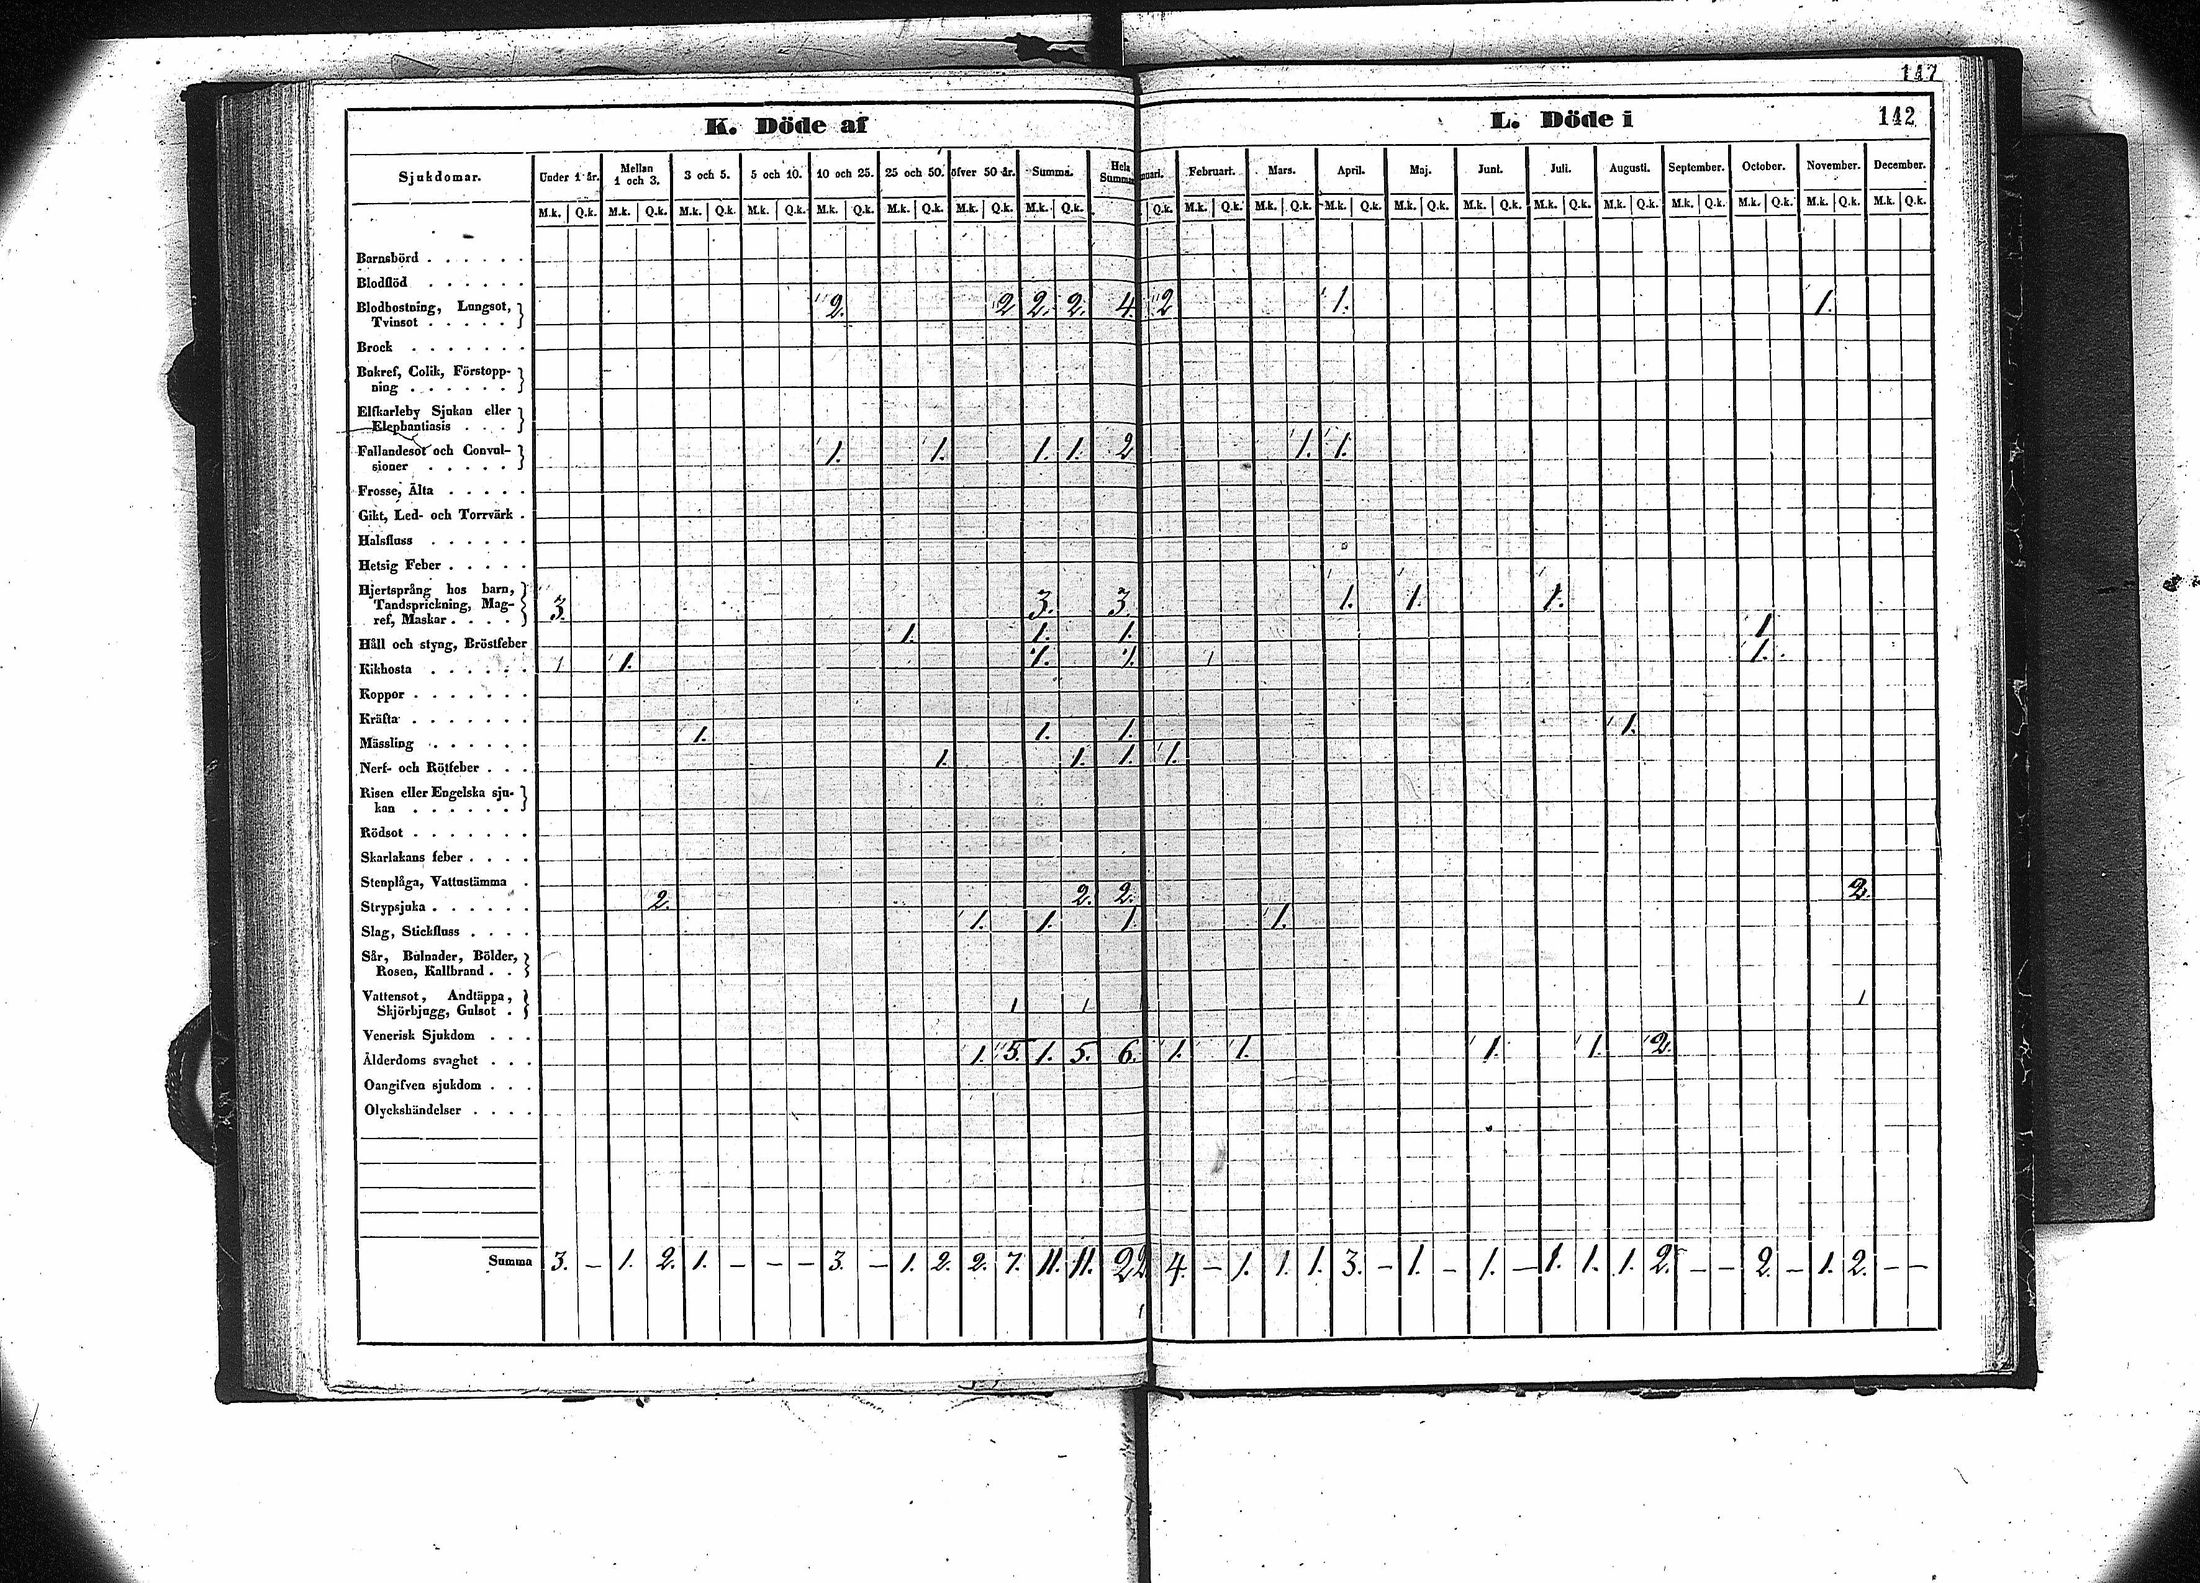 147
142
K. Döde af
L. Döde i
Sjukdomar. Under 1 år. Mellan 1 och 3. 3 och 5. 5 och 10. 10 och 25. 25 och 50. öfver 50 år. Summa. Hela Summan nuari. Februari. Mars. April. Maj. Juni. Juli. Augusti. September. October. November. December.
M.k. Q.k. M.k. Q.k. M.k. Q.k. M.k. Q.k. M.k. Q.k. M.k. Q.k. M.k. Q.k. M.k. Q.k. Q.k. M.k. Q.k. M.k. Q.k. M.k. Q.k. M.k. Q.k. M.k. Q.k. M.k. Q.k. M.k. Q.k. M.k. Q.k. M.k. Q.k. M.k. Q.k. M.k. Q.k.
Barnsbörd . . . . . .
Blodflöd . . . . . .
Blodhostning, Lungsot,
Tvinsot . . . . . 2. 2 2. 2. 4. 2 1. 1.
Brock . . . . . . .
Bukref, Colik, Förstopp-
ning . . . . . .
Elfkarleby Sjukan eller
Elephantiasis . . .
Fallandesot och Convul-
sioner . . . . . 1. 1. 1. 1. 2 1. 1.
Frosse, Älta . . . . .
Gikt, Led- och Torrvärk .
Halsfluss . . . . . .
Hetsig Feber . . . . .
Hjertsprång hos barn,
Tandsprickning, Mag-
ref, Maskar . . . . 3. 3. 3. 1. 1. 1.
Håll och styng, Bröstfeber 1. 1. 1. 1
Kikhosta . . . . . . 1 1. 1. 1. 1 1.
Koppor . . . . . . .
Kräfta . . . . . . .
Mässling . . . . . . 1. 1. 1. 1.
Nerf- och Rötfeber . . . 1. 1. 1. 1.
Risen eller Engelska sju-
kan . . . . . .
Rödsot . . . . . . .
Skarlakans feber . . . .
Stenplåga, Vattustämma .
Strypsjuka . . . . . . 2. 2. 2. 2.
Slag, Stickfluss . . . . 1. 1. 1. 1.
Sår, Bulnader, Bölder,
Rosen, Kallbrand . .
Vattensot, Andtäppa,
Skjörbjugg, Gulsot . 1 1 1
Venerisk Sjukdom . . .
Ålderdoms svaghet . . . 1. 5. 1. 5. 6. 1. 1. 1. 1. 2.
Oangifven sjukdom . . .
Olyckshändelser . . . .
Summa 3. – 1. 2. 1. – – – 3. – 1. 2. 2. 7. 11. 11. 22. 4. – 1. 1. 1. 3. – 1. – 1. – 1. 1. 1. 2. – – 2. – 1. 2. – –